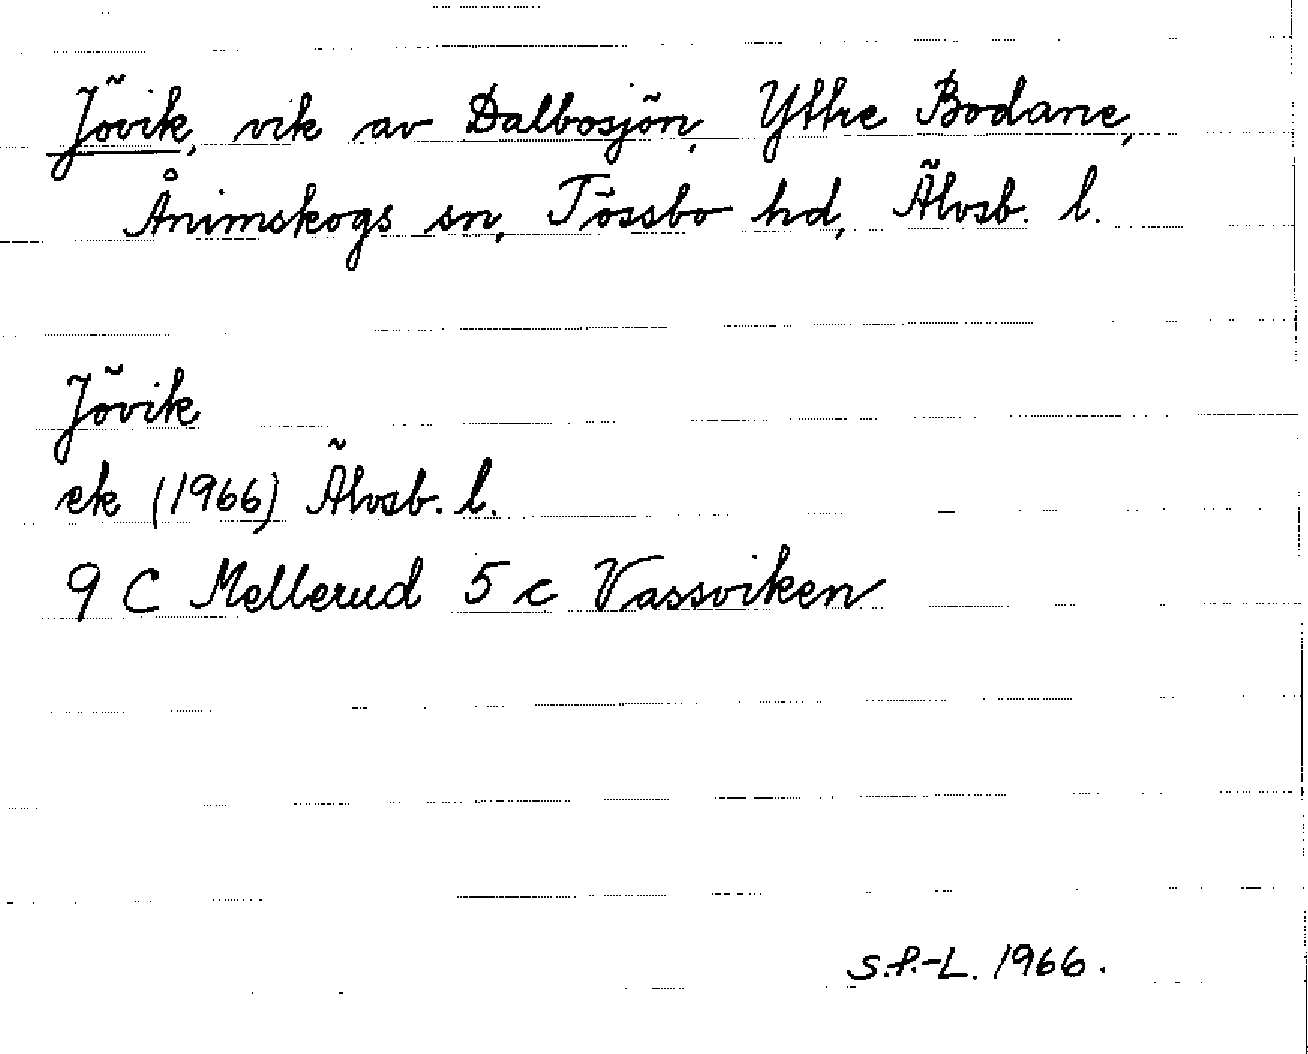 Jövik, vik av Dalbosjön, Yttre Bodane,
Ånimskogs sn, Tössbo hd, Älvsb. l.
Jövik
ek (1966) Älvsb. l.
9 C Mellerud 5 c Vassviken
S.P.-L. 1966.